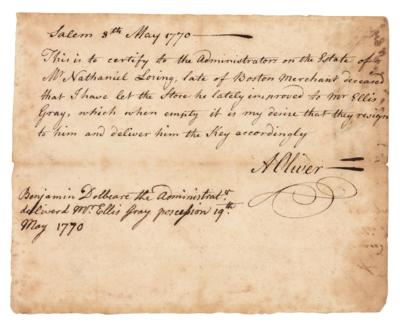 Salem 8th May 1770
This is to certify to the Administrators on the Estate of
Mr Nathaniel Loring, late of Boston Merchant deceased
that I have let the Store he lately improved to Mr Ellis
Gray, which when empty it is my desire that they resign
to him and deliver him the Key accordingly
A Oliver
Benjamin Dolbeare the Administratr
deliverd Mr Ellis Gray posession 19th
May 1770